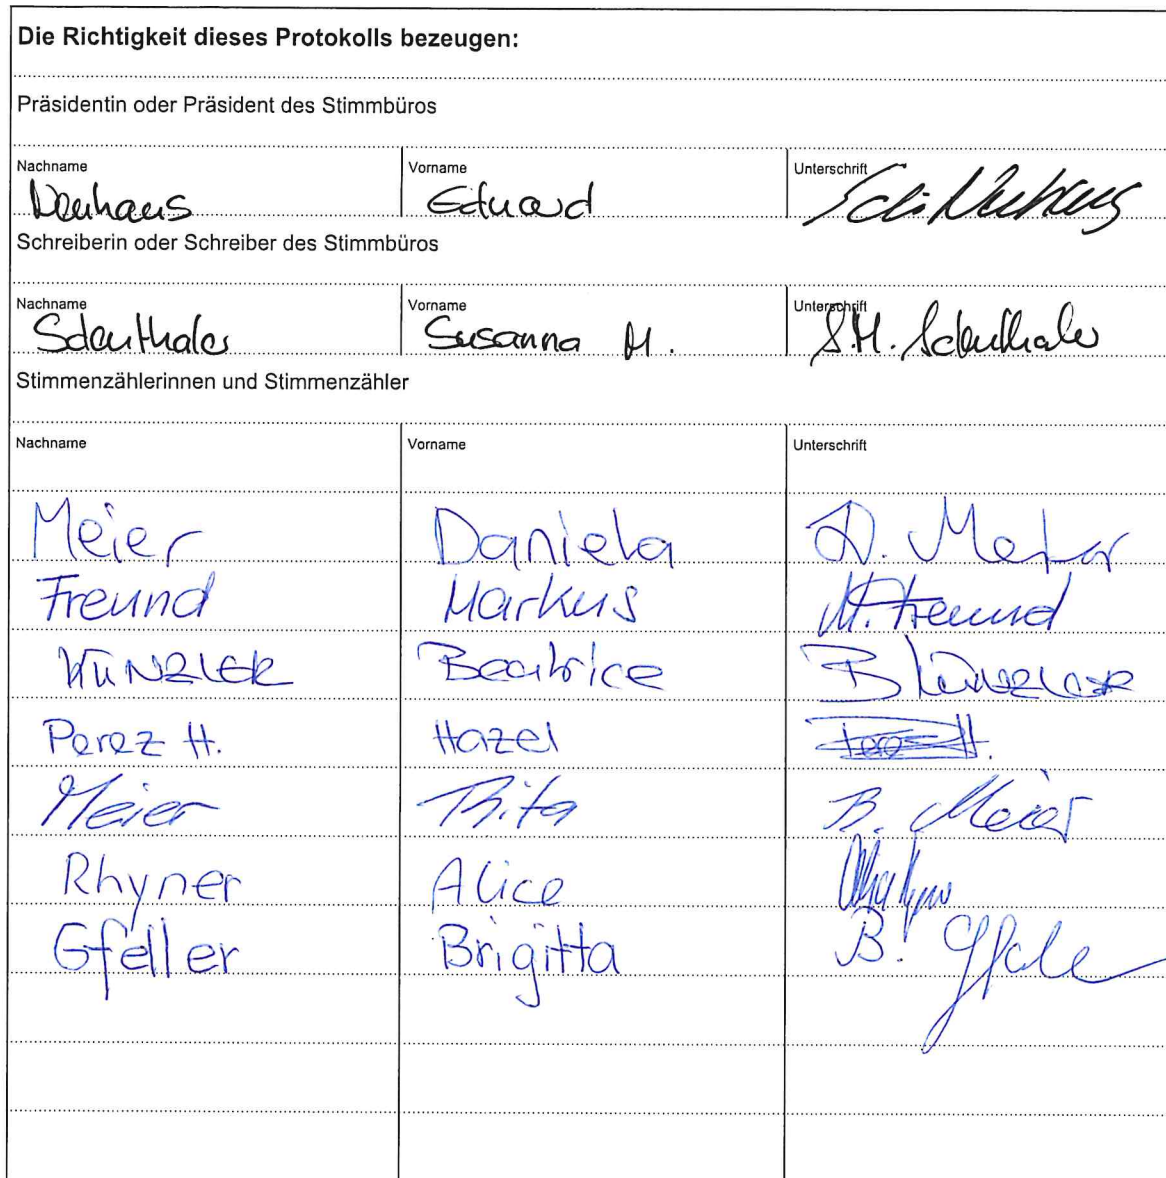 Die Richtigkeit dieses Protokolls bezeugen:
Präsidentin oder Präsident des Stimmbüros
Nachname Vorname Unterschrift
Neuhaus Eduard Edi Neuhaus
Schreiberin oder Schreiber des Stimmbüros
Nachname Vorname Unterschrift
Susanna M. S.M.
Stimmenzählerinnen und Stimmenzähler
Nachname Vorname Unterschrift
Meier Daniela D. Meier
Freund Markus M. Freund
KÜNZLER Beatrice B Künzler
Perez H. Hazel Perez H.
Meier B. Meier
Rhyner Alice
Gfeller Brigitta B. Gfeller